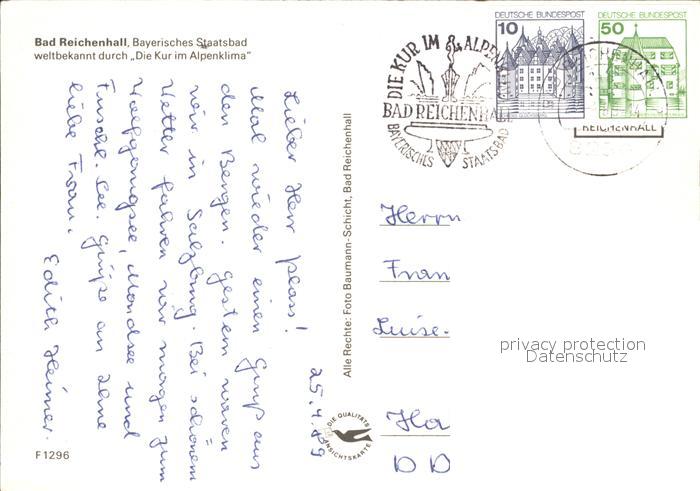 Bad Reichenhall, Bayerisches Staatsbad
weltbekannt durch „Die Kur im Alpenklima“
DEUTSCHE BUNDESPOST
10
DEUTSCHE BUNDESPOST
50
DIE KUR IM ALPEN
BAD REICHENHALL
BAYERISCHES STAATSBAD
REICHENHALL
25.4.89
Lieber Herr
Mal wieder einen Gruß aus
den Bergen. Gestern waren
wir in Salzburg. Bei schönem
Wetter fahren wir morgen zum
Wolfgangsee, Mondsee und
Fuschl. See. Grüße an Ihre
liebe Frau.
Edith
Alle Rechte: Foto Baumann-Schicht, Bad Reichenhall
Herrn
Frau
Luise-
Ha
DD
privacy protection
Datenschutz
DIE QUALITÄTS
ANSICHTSKARTE
F1296